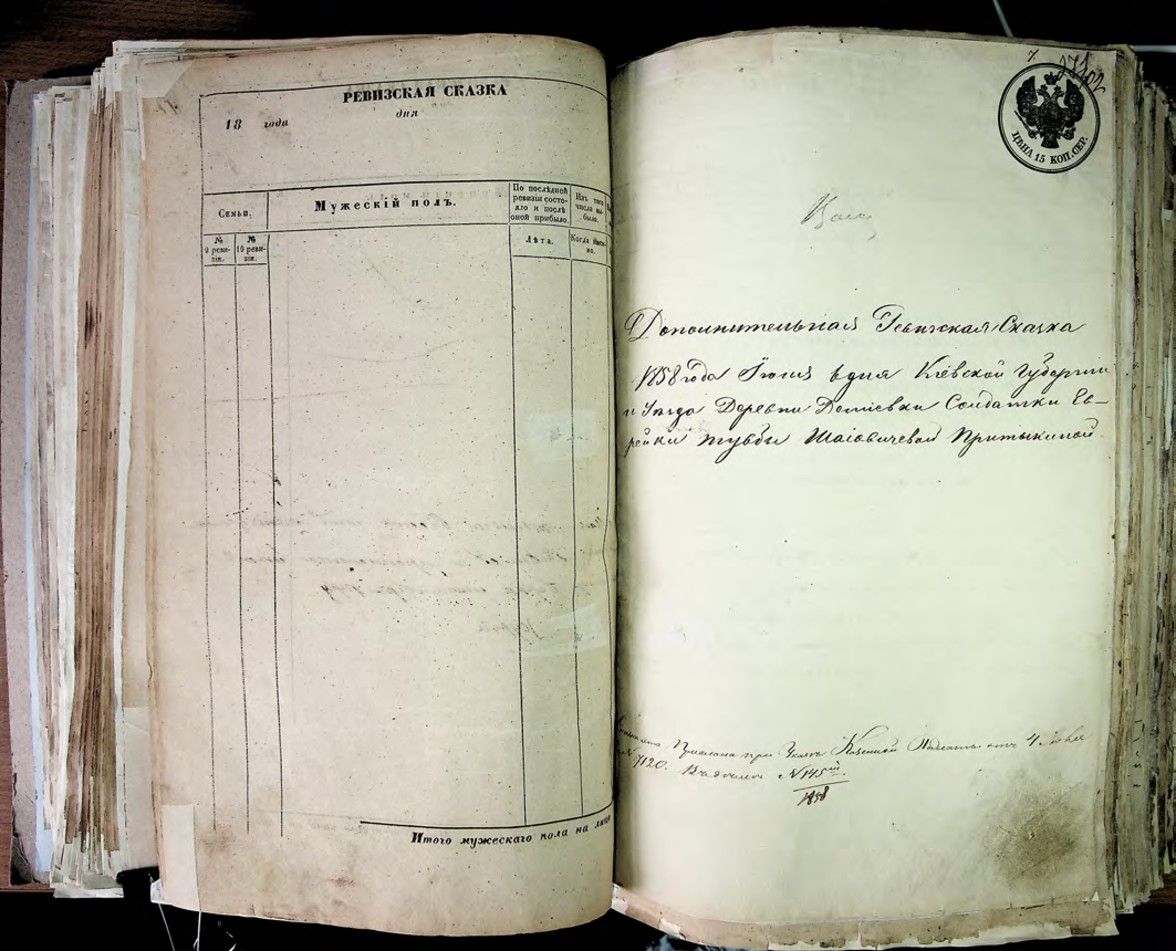 РЕВИЗСКАЯ СКАЗКА
18 года дня
Семьи.
Мужескій полъ.
По послѣдней
ревизіи состо-
яло и послѣ
оной прибыло.
Изъ того
числа вы-
было.
№
9 реви-
зіи.
№
10 реви-
зіи.
Лѣта.
Когда имен-
но.
Итого мужескаго пола на лицо
7.
ЦѢНА 15 КОП. СЕР.
Дополнительная Ревизская Сказка
1858 года Іюня 6 дня Кіевской Губерніи
и Уѣзда Деревни Деміевки Солдатки Ев-
рейки Шаіовичевой Притыкиной
Прислана при Указѣ Казенной Палаты отъ 4 Іюля
№ 7120. №145
1858